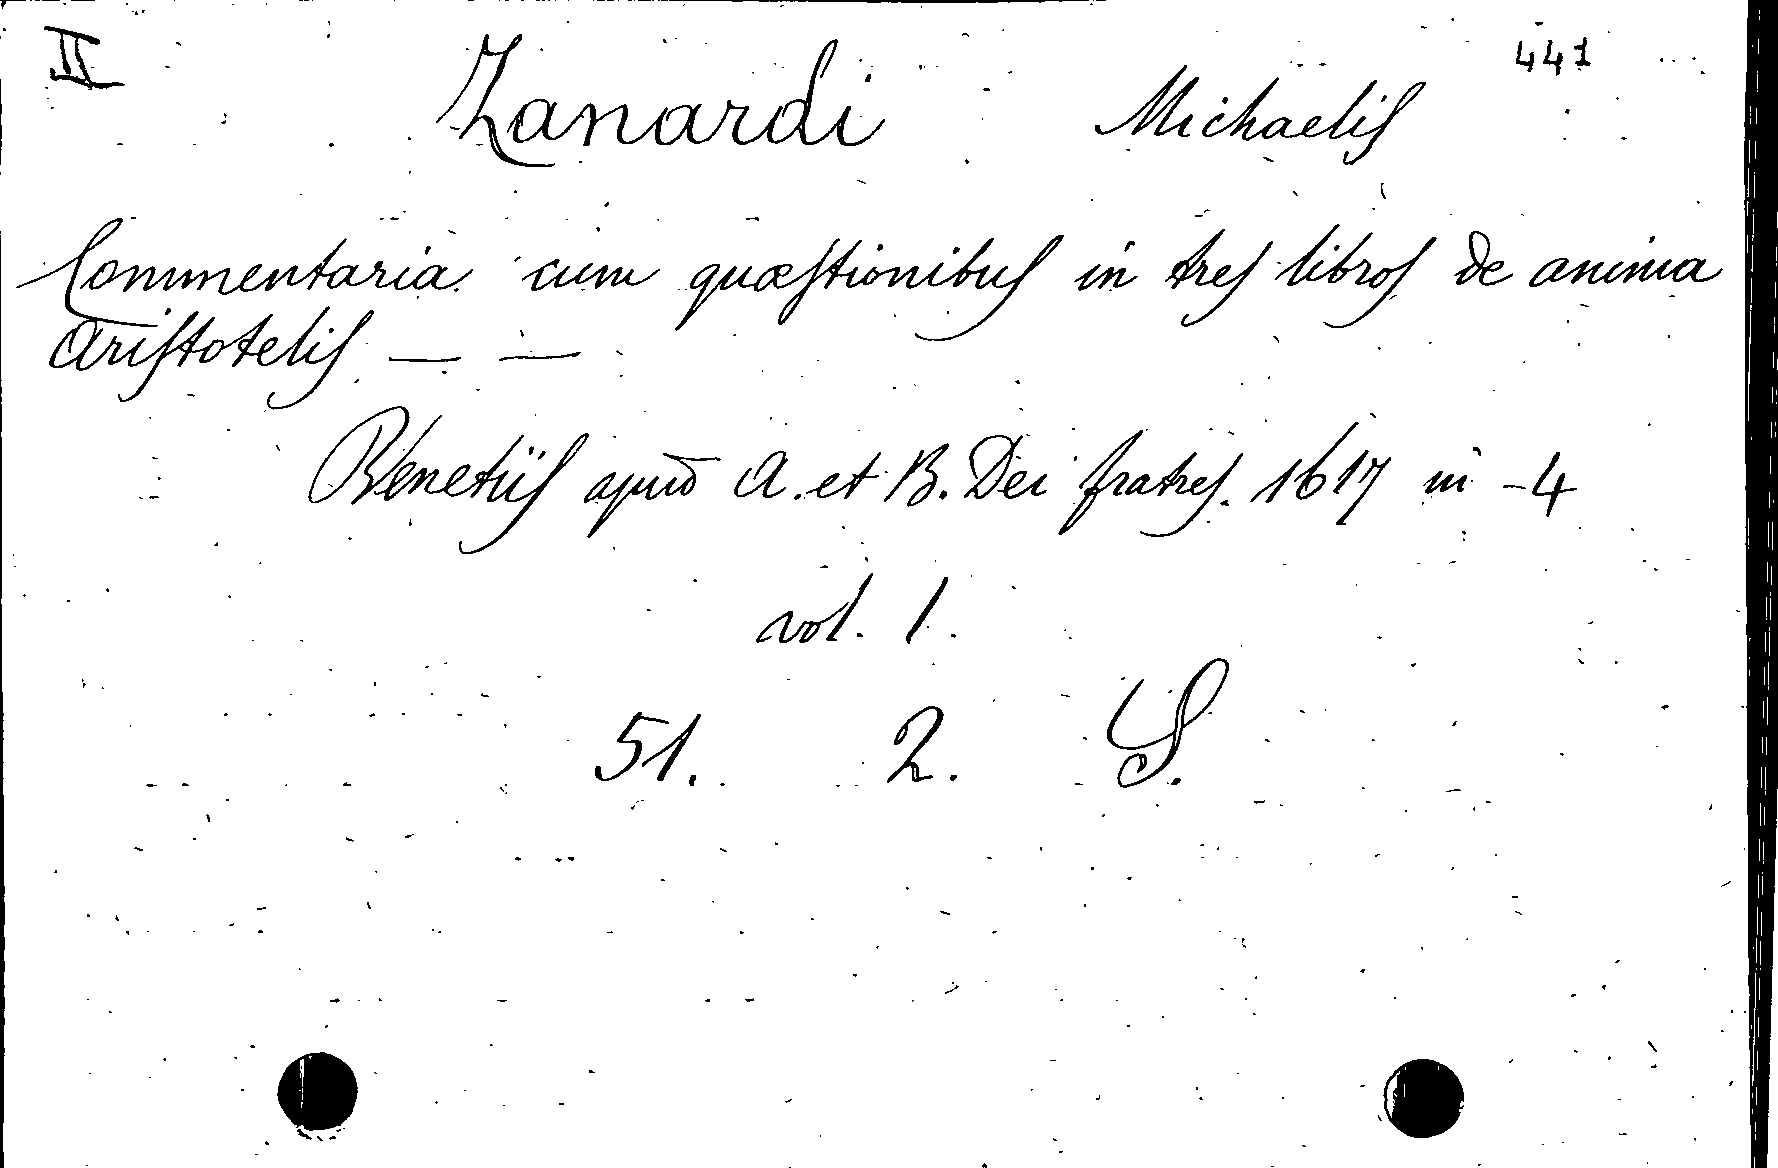 II
441
Zanardi Michaelis
Commentaria cum quæstionibus in tres libros de anima
Aristotelis — —
Venetiis apud A. et B. Dei fratres. 1617 in -4
vol. 1.
51. 2. S.